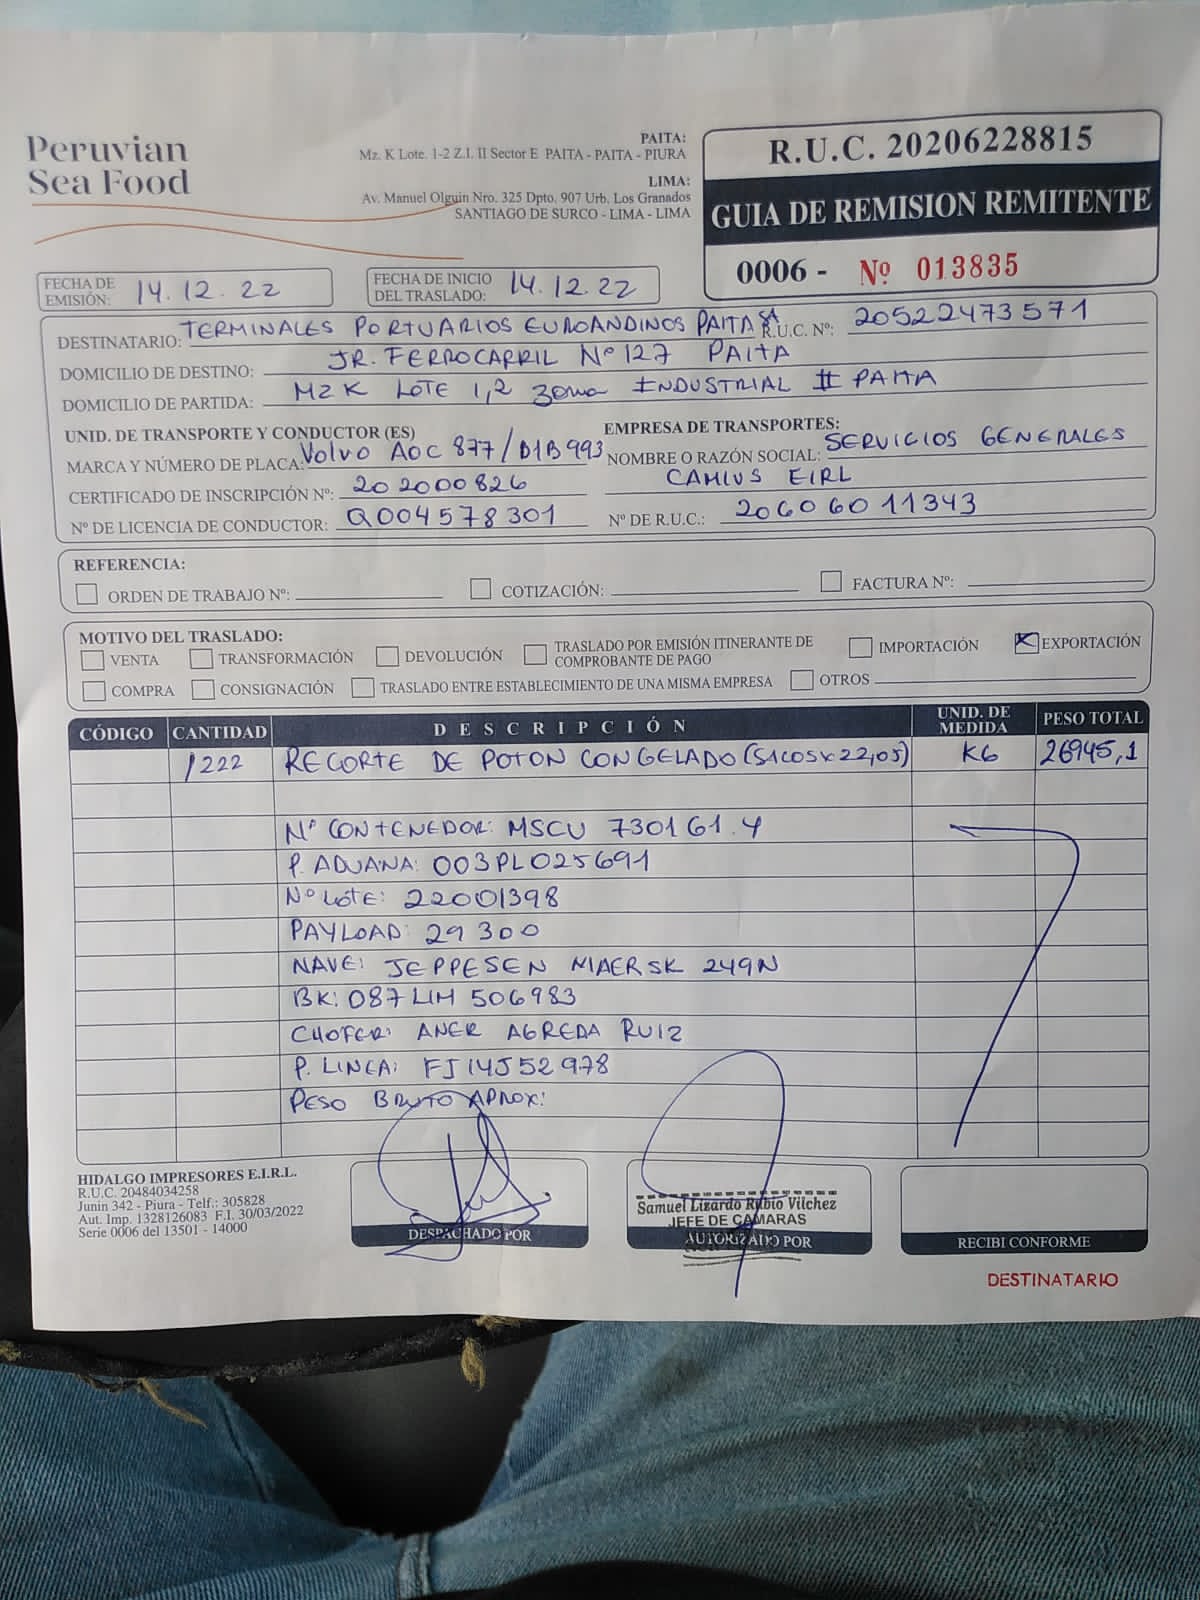 Peruvian
Sea Food
PAITA:
Mz. K Lote. 1-2 Z.I. II Sector E PAITA - PAITA - PIURA
LIMA:
Av. Manuel Olguin Nro. 325 Dpto. 907 Urb. Los Granados
SANTIAGO DE SURCO - LIMA - LIMA
R.U.C. 20206228815
GUIA DE REMISION REMITENTE
0006 - Nº 013835
FECHA DE EMISIÓN: 14.12.22
FECHA DE INICIO DEL TRASLADO: 14.12.22
DESTINATARIO: TERMINALES PORTUARIOS EUROANDINOS PAITA SA R.U.C. Nº: 20522473571
DOMICILIO DE DESTINO: JR. FERROCARRIL Nº 127 PAITA
DOMICILIO DE PARTIDA: MZ K LOTE 1,2 Zona INDUSTRIAL II PAITA
UNID. DE TRANSPORTE Y CONDUCTOR (ES)
MARCA Y NÚMERO DE PLACA: Volvo AOC 877/D1B993
CERTIFICADO DE INSCRIPCIÓN Nº: 202000826
Nº DE LICENCIA DE CONDUCTOR: Q004578301
EMPRESA DE TRANSPORTES:
NOMBRE O RAZÓN SOCIAL: SERVICIOS GENERALES
CAMIUS EIRL
Nº DE R.U.C.: 20606011343
REFERENCIA:
ORDEN DE TRABAJO Nº: COTIZACIÓN: FACTURA Nº:
MOTIVO DEL TRASLADO:
VENTA TRANSFORMACIÓN DEVOLUCIÓN TRASLADO POR EMISIÓN ITINERANTE DE COMPROBANTE DE PAGO IMPORTACIÓN EXPORTACIÓN
COMPRA CONSIGNACIÓN TRASLADO ENTRE ESTABLECIMIENTO DE UNA MISMA EMPRESA OTROS
CÓDIGO CANTIDAD DESCRIPCIÓN UNID. DE MEDIDA PESO TOTAL
1222 RECORTE DE POTON CONGELADO (SACOS x 22,05) KG 26945,1
Nº CONTENEDOR: MSCU 730161.4
P. ADUANA: 003PL025691
Nº LOTE: 22001398
PAYLOAD: 29300
NAVE: JEPPESEN MAERSK 249N
BK: 087LIM506983
CHOFER: ANER AGREDA RUIZ
P. LINEA: FJ14J52978
PESO BRUTO APROX:
HIDALGO IMPRESORES E.I.R.L.
R.U.C. 20484034258
Junin 342 - Piura - Telf.: 305828
Aut. Imp. 1328126083 F.I. 30/03/2022
Serie 0006 del 13501 - 14000
DESPACHADO POR
Samuel Lizardo Rubio Vilchez
JEFE DE CAMARAS
AUTORIZADO POR
RECIBI CONFORME
DESTINATARIO